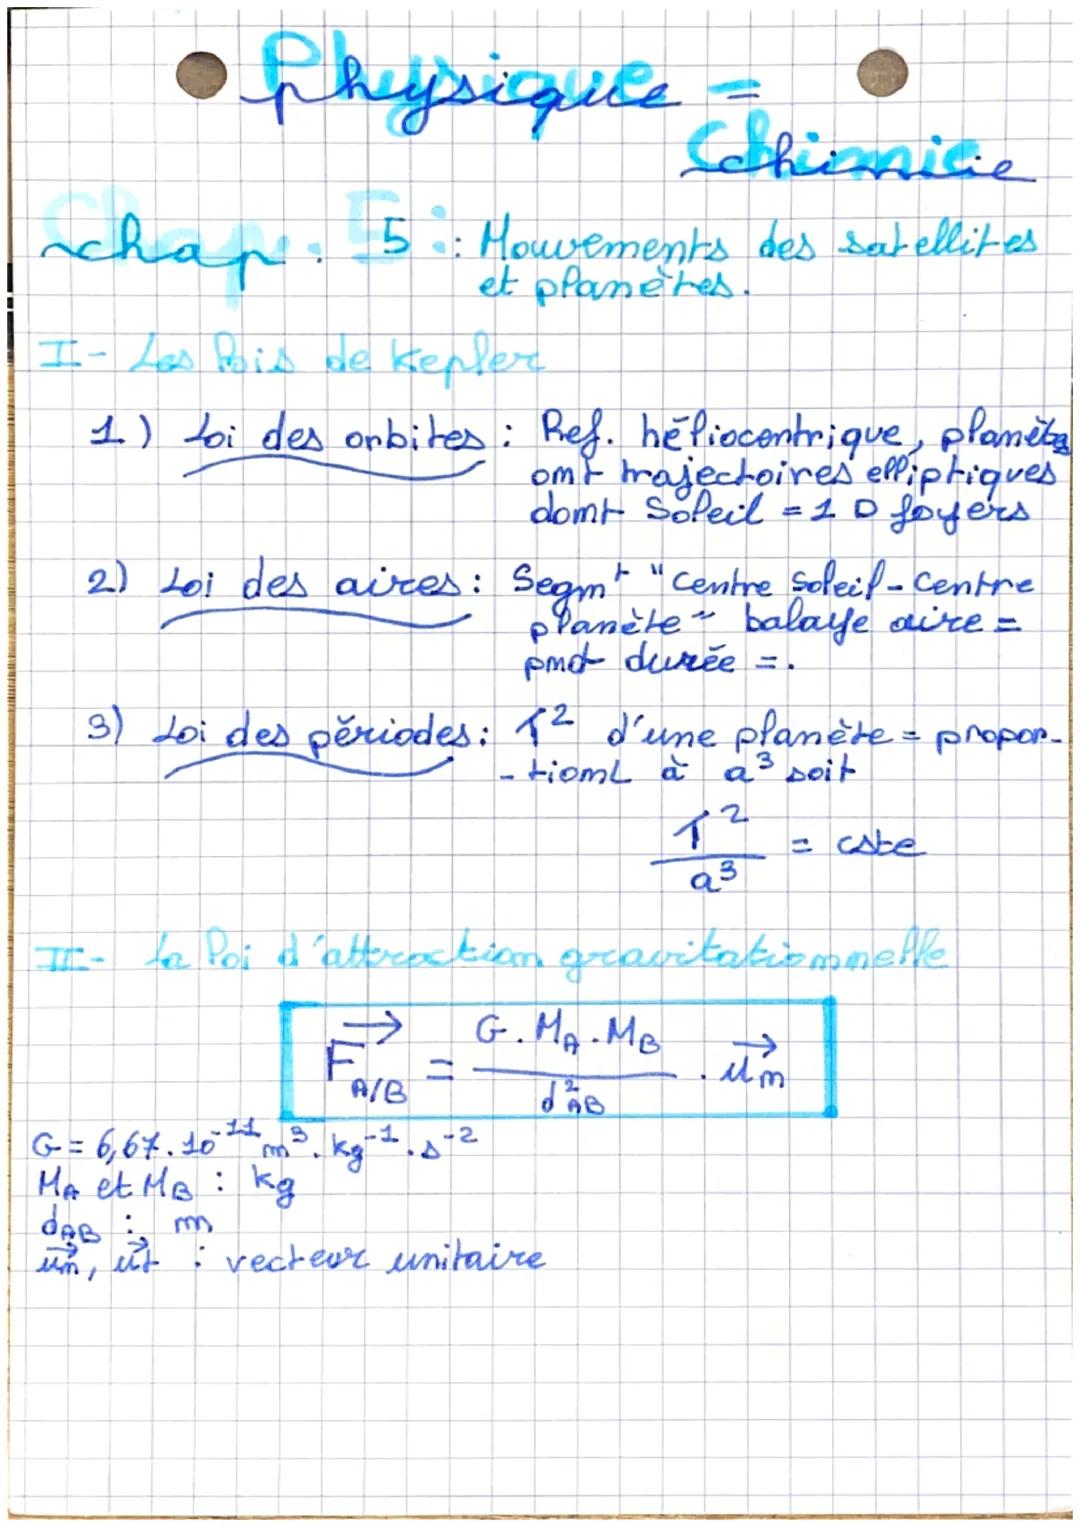 Physique -
Chimie
chap. 5 : Mouvements des satellites
et planètes.
I- Les lois de Kepler
1) Loi des orbites : Ref. héliocentrique, planètes
ont trajectoires elliptiques
dont Soleil = 1 D foyers
2) Loi des aires : Segmt "Centre Soleil - Centre
planète" balaye aire =
pndt durée =.
3) Loi des périodes : T² d'une planète = propor-
-tionnL à a³ soit
T²/a³ = cste
II- La loi d'attraction gravitationnelle
F⃗A/B = G.MA.MB/d²AB . u⃗n
G = 6,67.10⁻¹¹ m³.kg⁻¹.s⁻²
MA et MB : kg
dAB : m
u⃗n, u⃗t : vecteur unitaire